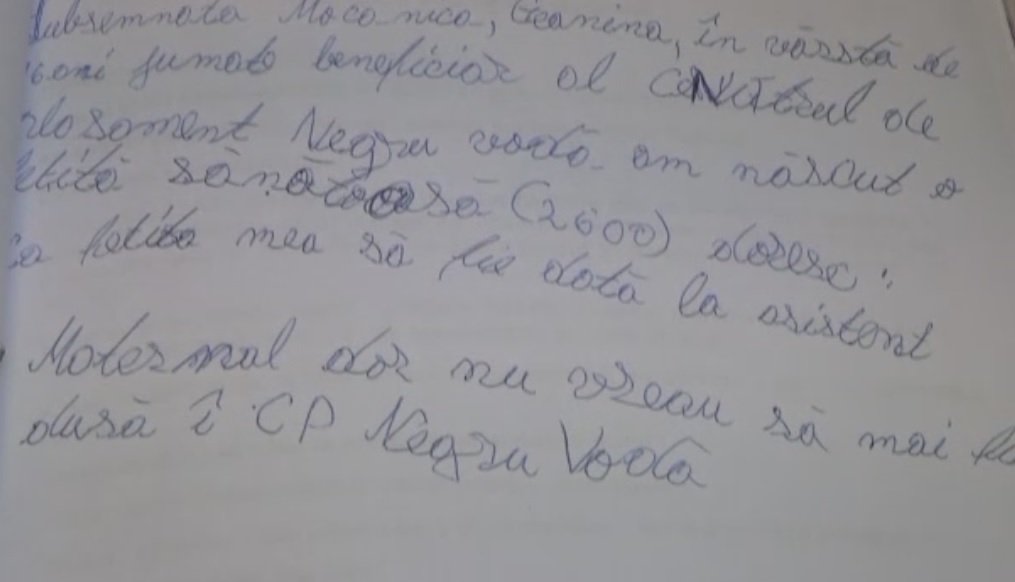 Subsemnata Mocanica, Geanina, în vârstă de
ani fumată beneficiar al Centrul de
Plasament Negru vodă. am născut o
fetiță sănătoasă (2600) doresc:
ca fetița mea să fie dată la asistent
Maternal dar nu vreau să mai fi
dusă î CP Negru Vodă